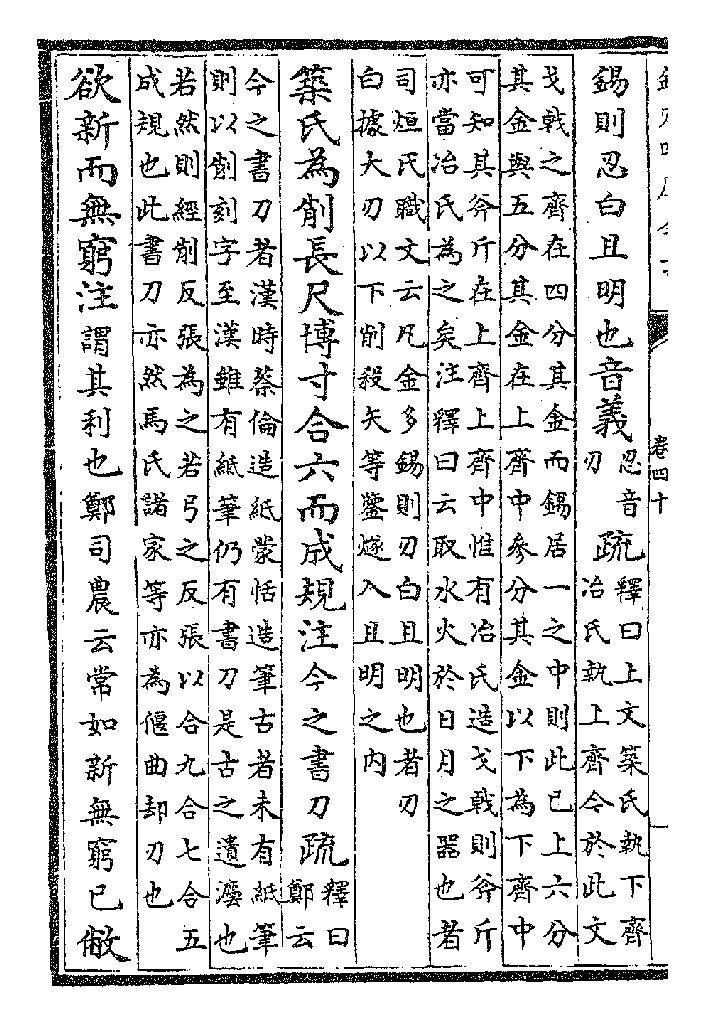 卷四十
一
錫則忍白且明也音義忍音刃疏釋曰上文築氏執下齊
冶氏執上齊今於此文
戈戟之齊在四分其金而錫居一之中則此已上六分
其金與五分其金在上齊中參分其金以下為下齊中
可知其斧斤在上齊上齊中惟有冶氏造戈戟則斧斤
亦當冶氏為之矣注釋曰云取水火於日月之器也者
司烜氏職文云凡金多錫則刃白且明也者刃
白據大刃以下削殺矢等鑒燧入且明之內
築氏為削長尺博寸合六而成規注今之書刀疏釋曰
鄭云
今之書刀者漢時蔡倫造紙蒙恬造筆古者未有紙筆
則以削刻字至漢雖有紙筆仍有書刀是古之遺灋也
若然則經削反張為之若弓之反張以合九合七合五
成規也此書刀亦然馬氏諸家等亦為偃曲却刃也
欲新而無窮注謂其利也鄭司農云常如新無窮已敝